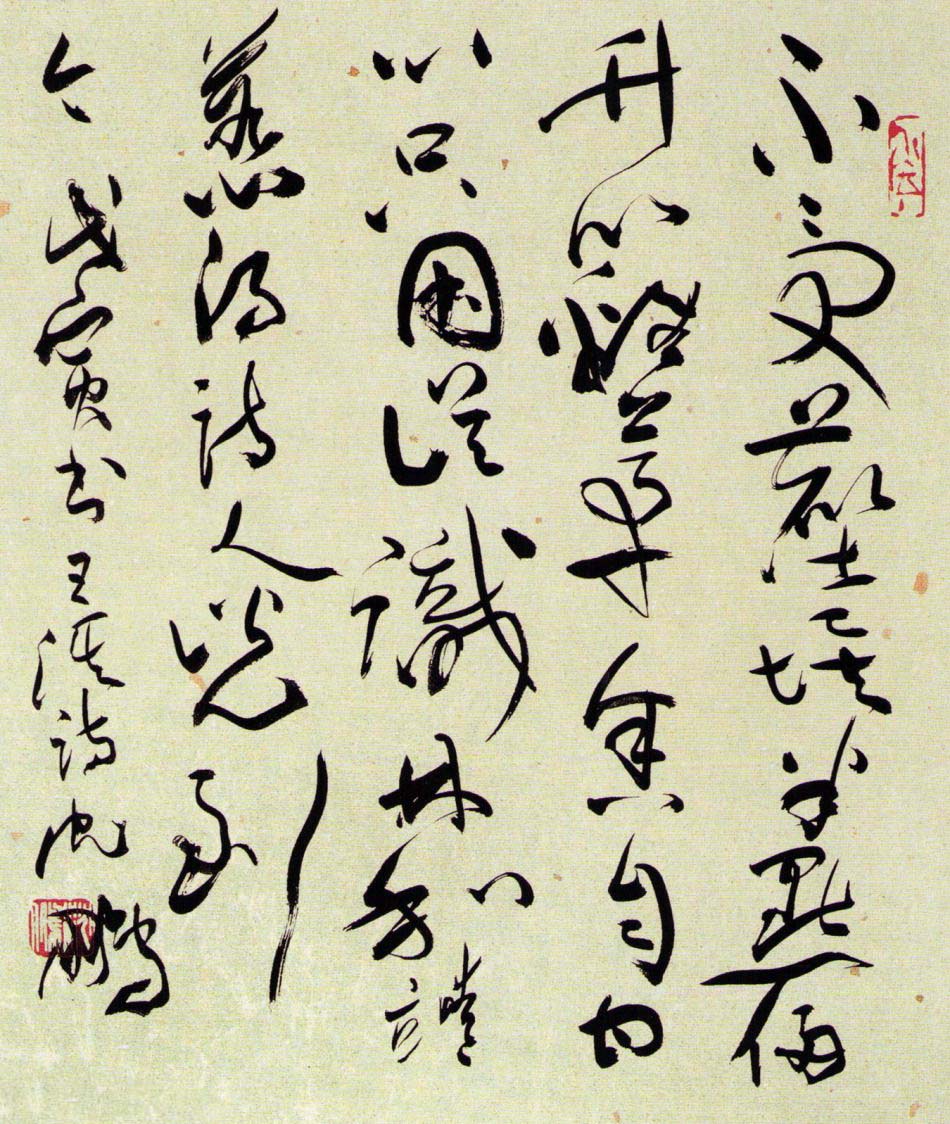 不受塵埃半點侵
竹籬茅舍自甘
心只因誤識林和靖
惹得詩人說到
今戊寅書王淇詩沈鵬